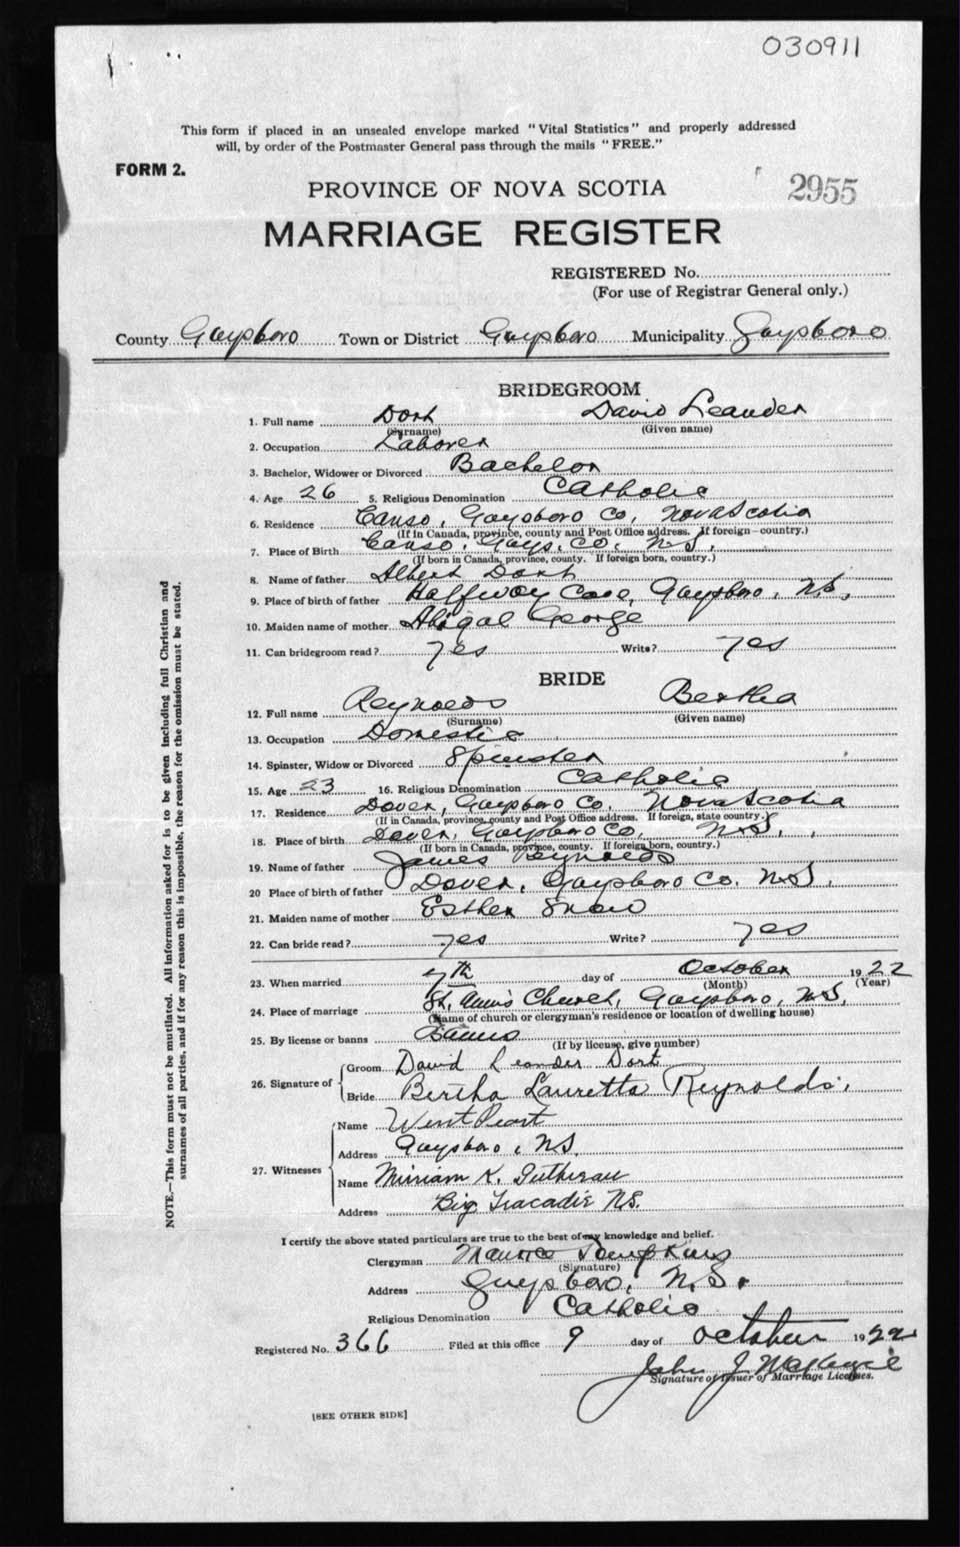 030911
This form if placed in an unsealed envelope marked "Vital Statistics" and properly addressed
will, by order of the Postmaster General pass through the mails "FREE."
FORM 2.
PROVINCE OF NOVA SCOTIA
2955
MARRIAGE REGISTER
REGISTERED No.
(For use of Registrar General only.)
County Guysboro Town or District Guysboro Municipality Guysboro
BRIDEGROOM
1. Full name Dort David Leander
(Surname) (Given name)
2. Occupation Laborer
3. Bachelor, Widower or Divorced Bachelor
4. Age 26 5. Religious Denomination Catholic
6. Residence Canso, Guysboro Co, Nova Scotia
(If in Canada, province, county and Post Office address. If foreign—country.)
7. Place of Birth Canso, Guys. Co. N.S.
(If born in Canada, province, county. If foreign born, country.)
8. Name of father Albert Dort
9. Place of birth of father Halfway Cove, Guysboro, N.S.
10. Maiden name of mother Abigal George
11. Can bridegroom read? yes Write? yes
BRIDE
12. Full name Reynolds Bertha
(Surname) (Given name)
13. Occupation Domestic
14. Spinster, Widow or Divorced Spinster
15. Age 23 16. Religious Denomination Catholic
17. Residence Dover, Guysboro Co. Nova Scotia
(If in Canada, province, county and Post Office address. If foreign, state country.)
18. Place of birth Dover, Guysboro Co, N.S.
(If born in Canada, province, county. If foreign born, country.)
19. Name of father James Reynolds
20 Place of birth of father Dover, Guysboro Co. N.S.
21. Maiden name of mother Esther Snow
22. Can bride read? yes Write? yes
23. When married 7th day of October 1922
(Month) (Year)
24. Place of marriage St. Ann's Church, Guysboro, N.S.
(Name of church or clergyman's residence or location of dwelling house)
25. By license or banns Banns
(If by license, give number)
26. Signature of Groom David Leander Dort
Bride Bertha Lauretta Reynolds.
27. Witnesses
Name Peart
Address Guysboro, N.S.
Name Miriam K.
Address Big Tracadie N.S.
I certify the above stated particulars are true to the best of my knowledge and belief.
Clergyman Maurice Tompkins
(Signature)
Address Guysboro, N.S.
Religious Denomination Catholic
Registered No. 366 Filed at this office 9 day of October 1922
John J McKenzie
Signature of Issuer of Marriage Licenses.
[SEE OTHER SIDE]
NOTE.—This form must not be mutilated. All information asked for is to be given including full Christian and
surnames of all parties, and if for any reason this is impossible, the reason for the omission must be stated.